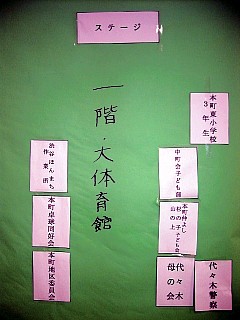 ステージ
一階・大体育館
本町東小学校
3年生
中町会子ども部
本町仲よし
杉の子子ども会
山の上
代々木警察
代々木
母の会
渋谷ほんまち
作業所
本町卓球同好会
本町地区委員会